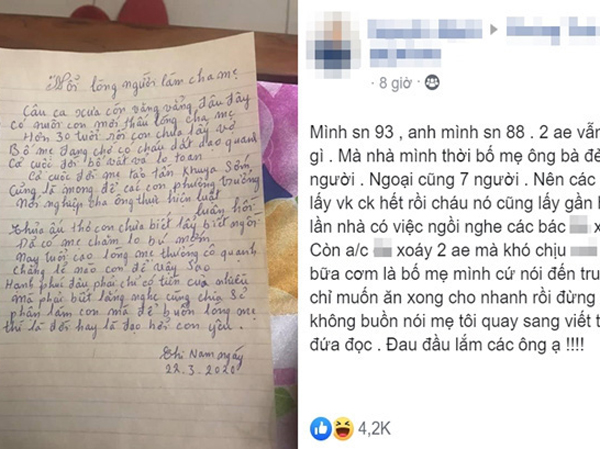 Nỗi lòng người làm cha mẹ
Câu ca xưa còn văng vẳng đâu đây
Có nuôi con mới thấu lòng cha mẹ
Hơn 30 tuổi rồi con chưa lấy vợ
Bố mẹ đang chờ có cháu dắt dao quanh
Cả cuộc đời bố vất vả lo toan
Cả cuộc đời mẹ tảo tần khuya sớm
Cũng là mong để các con phương trưởng
Nối nghiệp cha ông thực hiện luật
luân hồi
Thủa ấu thơ con chưa biết lấy biết ngồi
Đã có mẹ chăm lo bú mớm
Nay tuổi cao lòng mẹ thường cô quanh
Chẳng lẽ nào con để vậy sao
Hạnh phúc đâu phải chỉ có tiền của nhiều
Mà phải biết lắng nghe cùng chia sẻ
phận làm con mà để buồn lòng mẹ
thì là đời hay là đạo hỡi con yêu.
Chi Nam ngày
22.3.2020
8 giờ
Mình sn 93 , anh mình sn 88 . 2 ae vẫn
gì . Mà nhà mình thời bố mẹ ông bà đẻ
người . Ngoại cũng 7 người . Nên các
lấy vk ck hết rồi cháu nó cũng lấy gần h
lần nhà có việc ngồi nghe các bác x
Còn a/c xoáy 2 ae mà khó chịu
bữa cơm là bố mẹ mình cứ nói đến tru
chỉ muốn ăn xong cho nhanh rồi đừng
không buồn nói mẹ tôi quay sang viết t
đứa đọc . Đau đầu lắm các ông ạ !!!!
4,2K